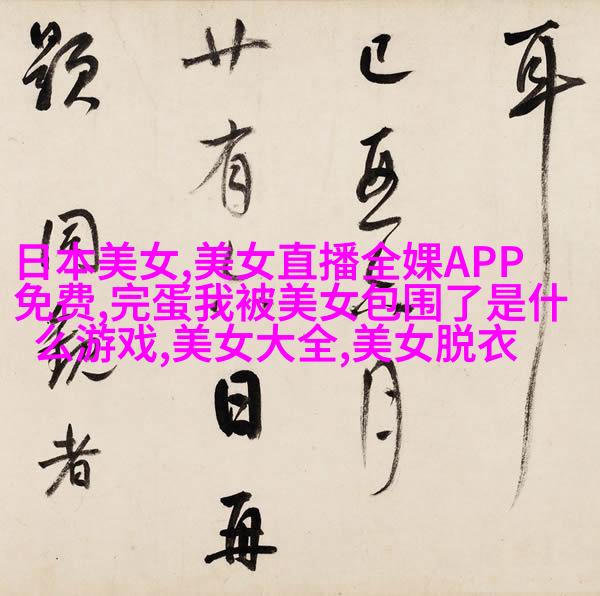 日本美女,美女直播全婐APP
免费,完蛋我被美女包围了是什
么游戏,美女大全,美女脱衣
耳
月
廿有日再
題同觀者